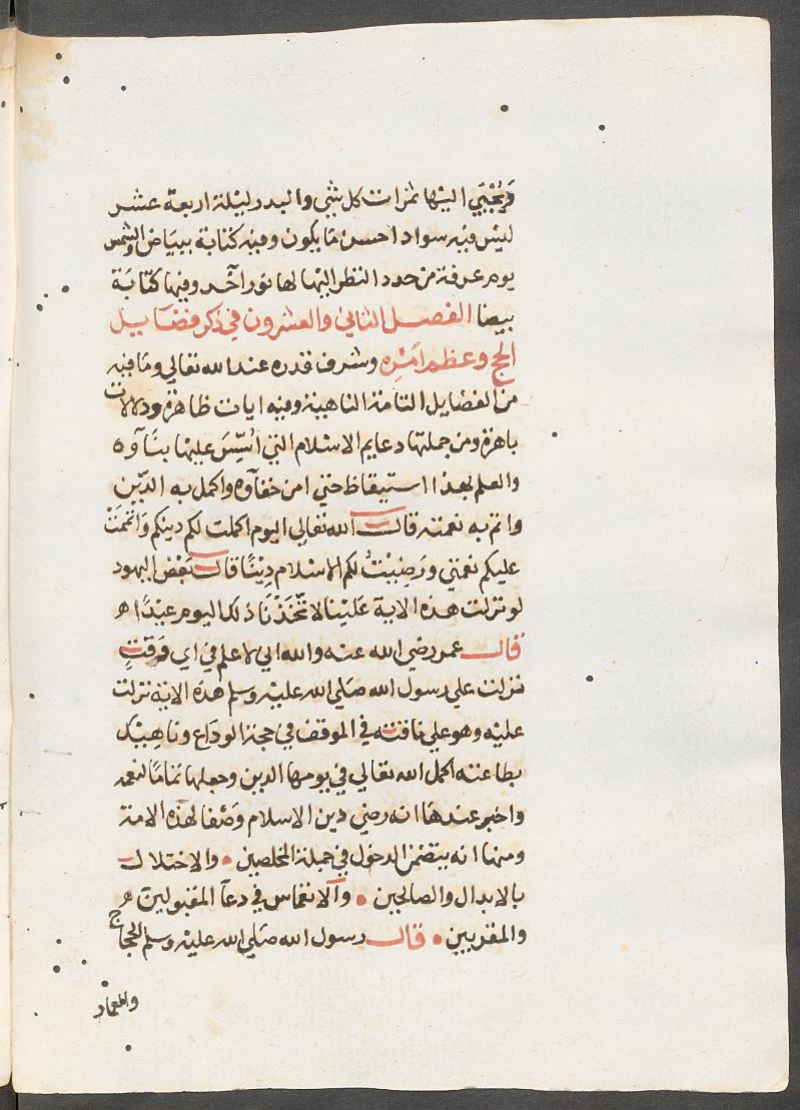 وَيُجْبَي اليْها ثمرات كل شي والبدر ليْلة اربعة عشر
ليْس فيه سوادا احسن مَا يكون وفيه كتابة ببيَاض والشمس
يوم عرفة من حدد النظر اليْها لها نور اَخر وفيْها كتابَة
بيضا الفصل الثاني والعشرون في ذكر فضَايل
الحج وعظم امْرِه وشرف قدره عند الله تعالي ومَا فيْه
من الفضايل التامة الناهيَة وفيه ايات ظاهرة ودلالات
باهرة ومن جملتها دعايم الاسْلام التي اُسِّسَ عليْها بنَآوه
والعلم بهذا استيقاظ حتي امن خفآوه واكمل به الدّين
واتم به نعمته قال الله تعالي اليوم اكملت لكم دينكم وَاتْمَمْتُ
عليكم نعمتي وَرَضِيْتُ لكم الاسْلام دِيْنًا قال بَعْض اليهود
لو نزلت هذه الاية عَلَيْنا لاتّخَذْنَا ذلك اليوم عيْدًا ه
قال عمر رضي الله عنه والله اني لاعلم في اي وَقتٍ
نزلت علي رسول الله صَلي الله عليْه وسلم هذه الاية نزلت
عليْه وهو علي ناقته في الموقف في حجة الودَاع وناهيْك
بطاعته اكمل الله تعالي في يومها الدين وجعلها تمامًا لنعمه
واخبر عندهَا انه رضي دين الاسلام وَصْفا لهذه الامة
ومنها انه يتضمن الدخول في جملة المخلصين • والاختلال
بالابدال والصالحين • والانغماس في دعآ المقبولين ه
والمقربين • قال رسول الله صَلي الله عليْه وسلم الحجاج
والعمار